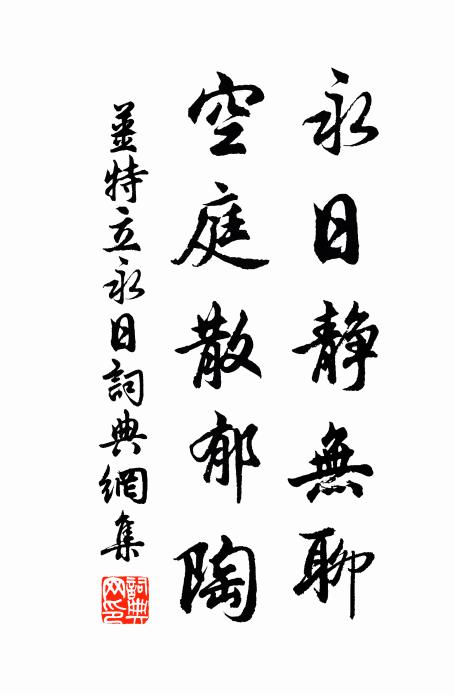 永日静無聊
空庭散郁陶
姜特立永日詞典網集
詞典
网印